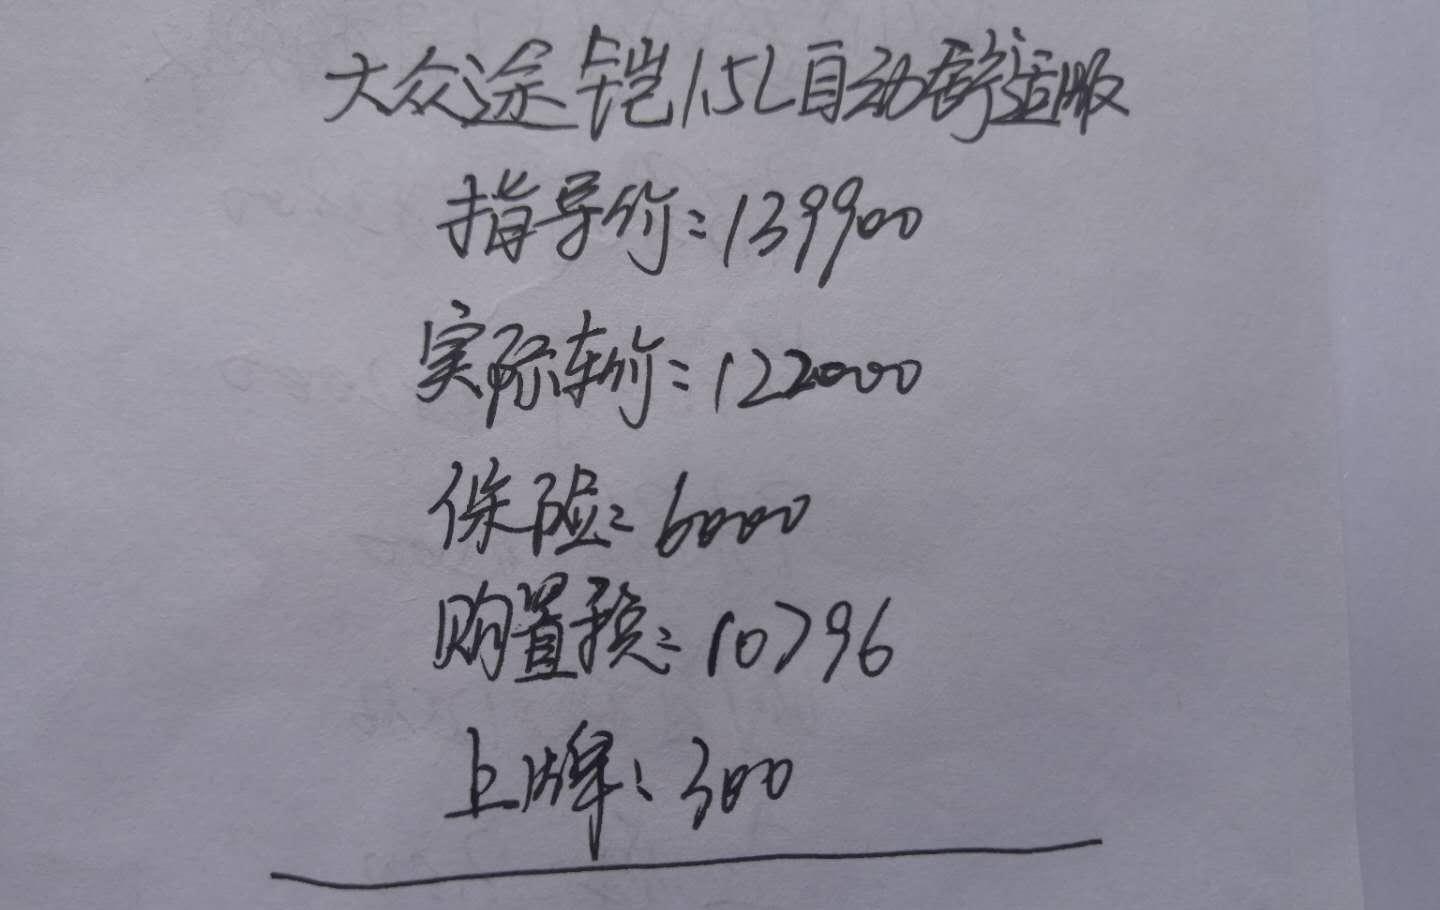 大众途铠1.5L自动舒适版
指导价:139900
实际车价:122000
保险:6000
购置税:10796
上牌:300